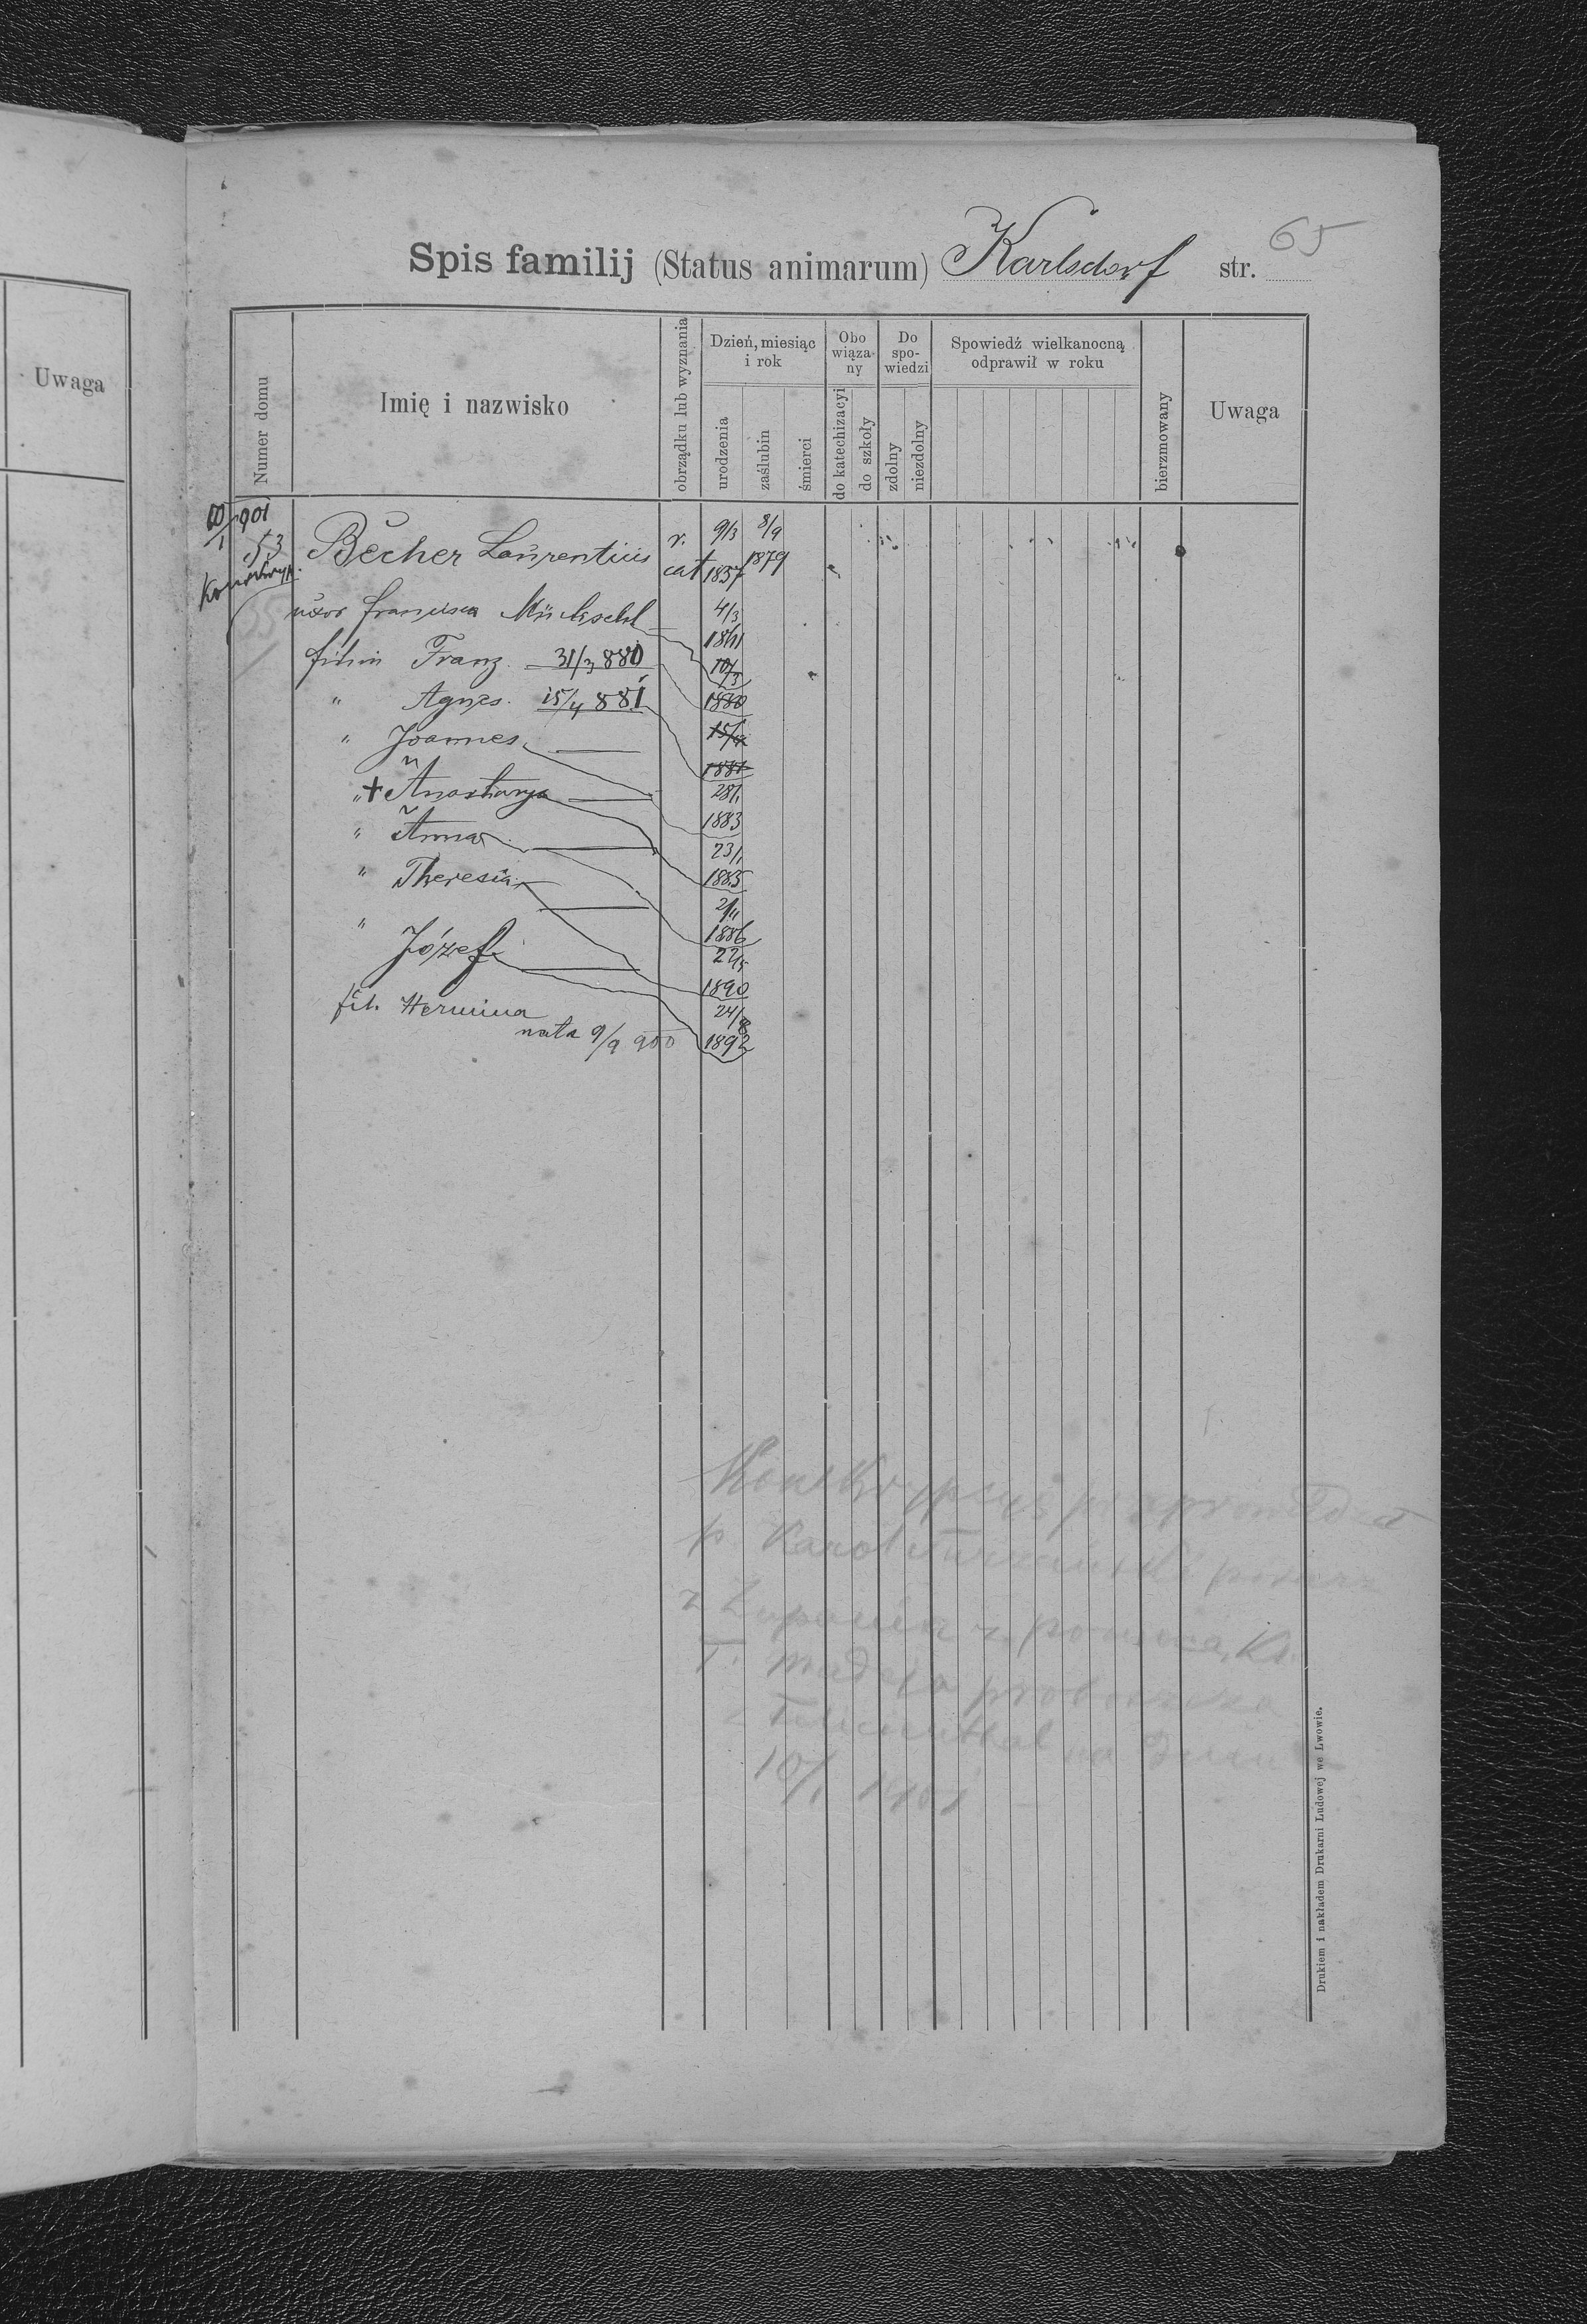 Uwaga
65
Spis familij (Status animarum) Karlsdorf str.
Numer domu
Imię i nazwisko
obrządku lub wyznania
Dzień, miesiąc i rok
urodzenia
zaślubin
śmierci
Obowiązany
do katechizacyi
do szkoły
Do spowiedzi
zdolny
niezdolny
Spowiedź wielkanocną odprawił w roku
bierzmowany
Uwaga
10/1 901
53 Becher Laurentius r. cat 9/3 1837 8/9 1879
uxor Francisca 4/3 1841
Franz 31/3 880 10/3 1880
" Agnes. 15/4 881 15/4 1881
" Joannes 28/1 1883
" + Anastasya 23/1 1885
" Anna 2/11 1886
" Theresia 22/5 1890
" Józef 24/8 1892
fil. Hermina
nata 9/9 900
p. Karol
z pomocą Ks.
T. proboszcza
10/1 1901
Drukiem i nakładem Drukarni Ludowej we Lwowie.